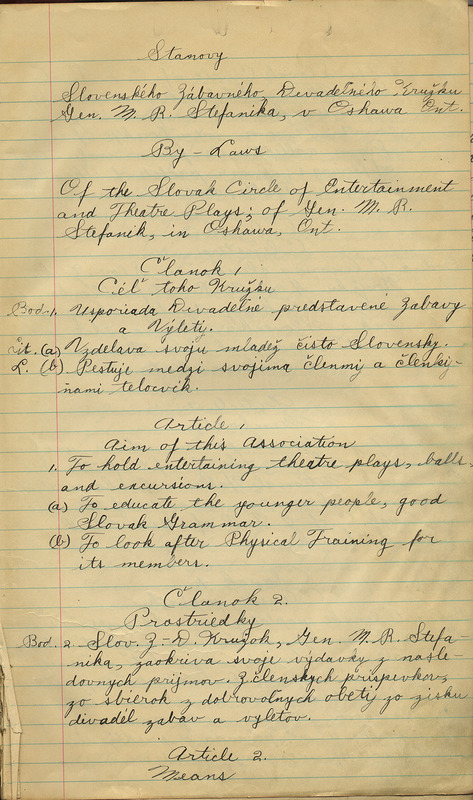 Stanovy
Slovenského Zábavného, Divadelného Kružku
Gen. M. R. Štefanika, v Oshawa Ont.
By-Laws
Of the Slovak Circle of Entertainment
and Theatre Plays; of Gen. M. R.
Stefanik, in Oshawa, Ont.
Článok 1
Cél toho Kružku
Bod. 1. Usporiada Divadelné predstavené Zabavy
a Výlety.
Lit. (a) Vzdelava svoju mladež čisto Slovensky.
L. (b) Pestuje medzi svojima členmy a členky-
ňami telocvik.
Article 1
Aim of this Association
1. To hold entertaining theatre plays, balls
and excursions.
(a) To educate the younger people, good
Slovak Grammar.
(b) To look after Physical Training for
its members.
Článok 2.
Prostriedky
Bod. 2. Slov. Z.-D. Kružok, Gen. M. R. Štefa-
nika, zaokriva svoje výdavky z nasle-
dovnych prijmov. Zčlenskych prispevkov,
zo sbierok z dobrovolných obetí, zo zisku
divadél zabav a vyletov.
Article 2.
Means